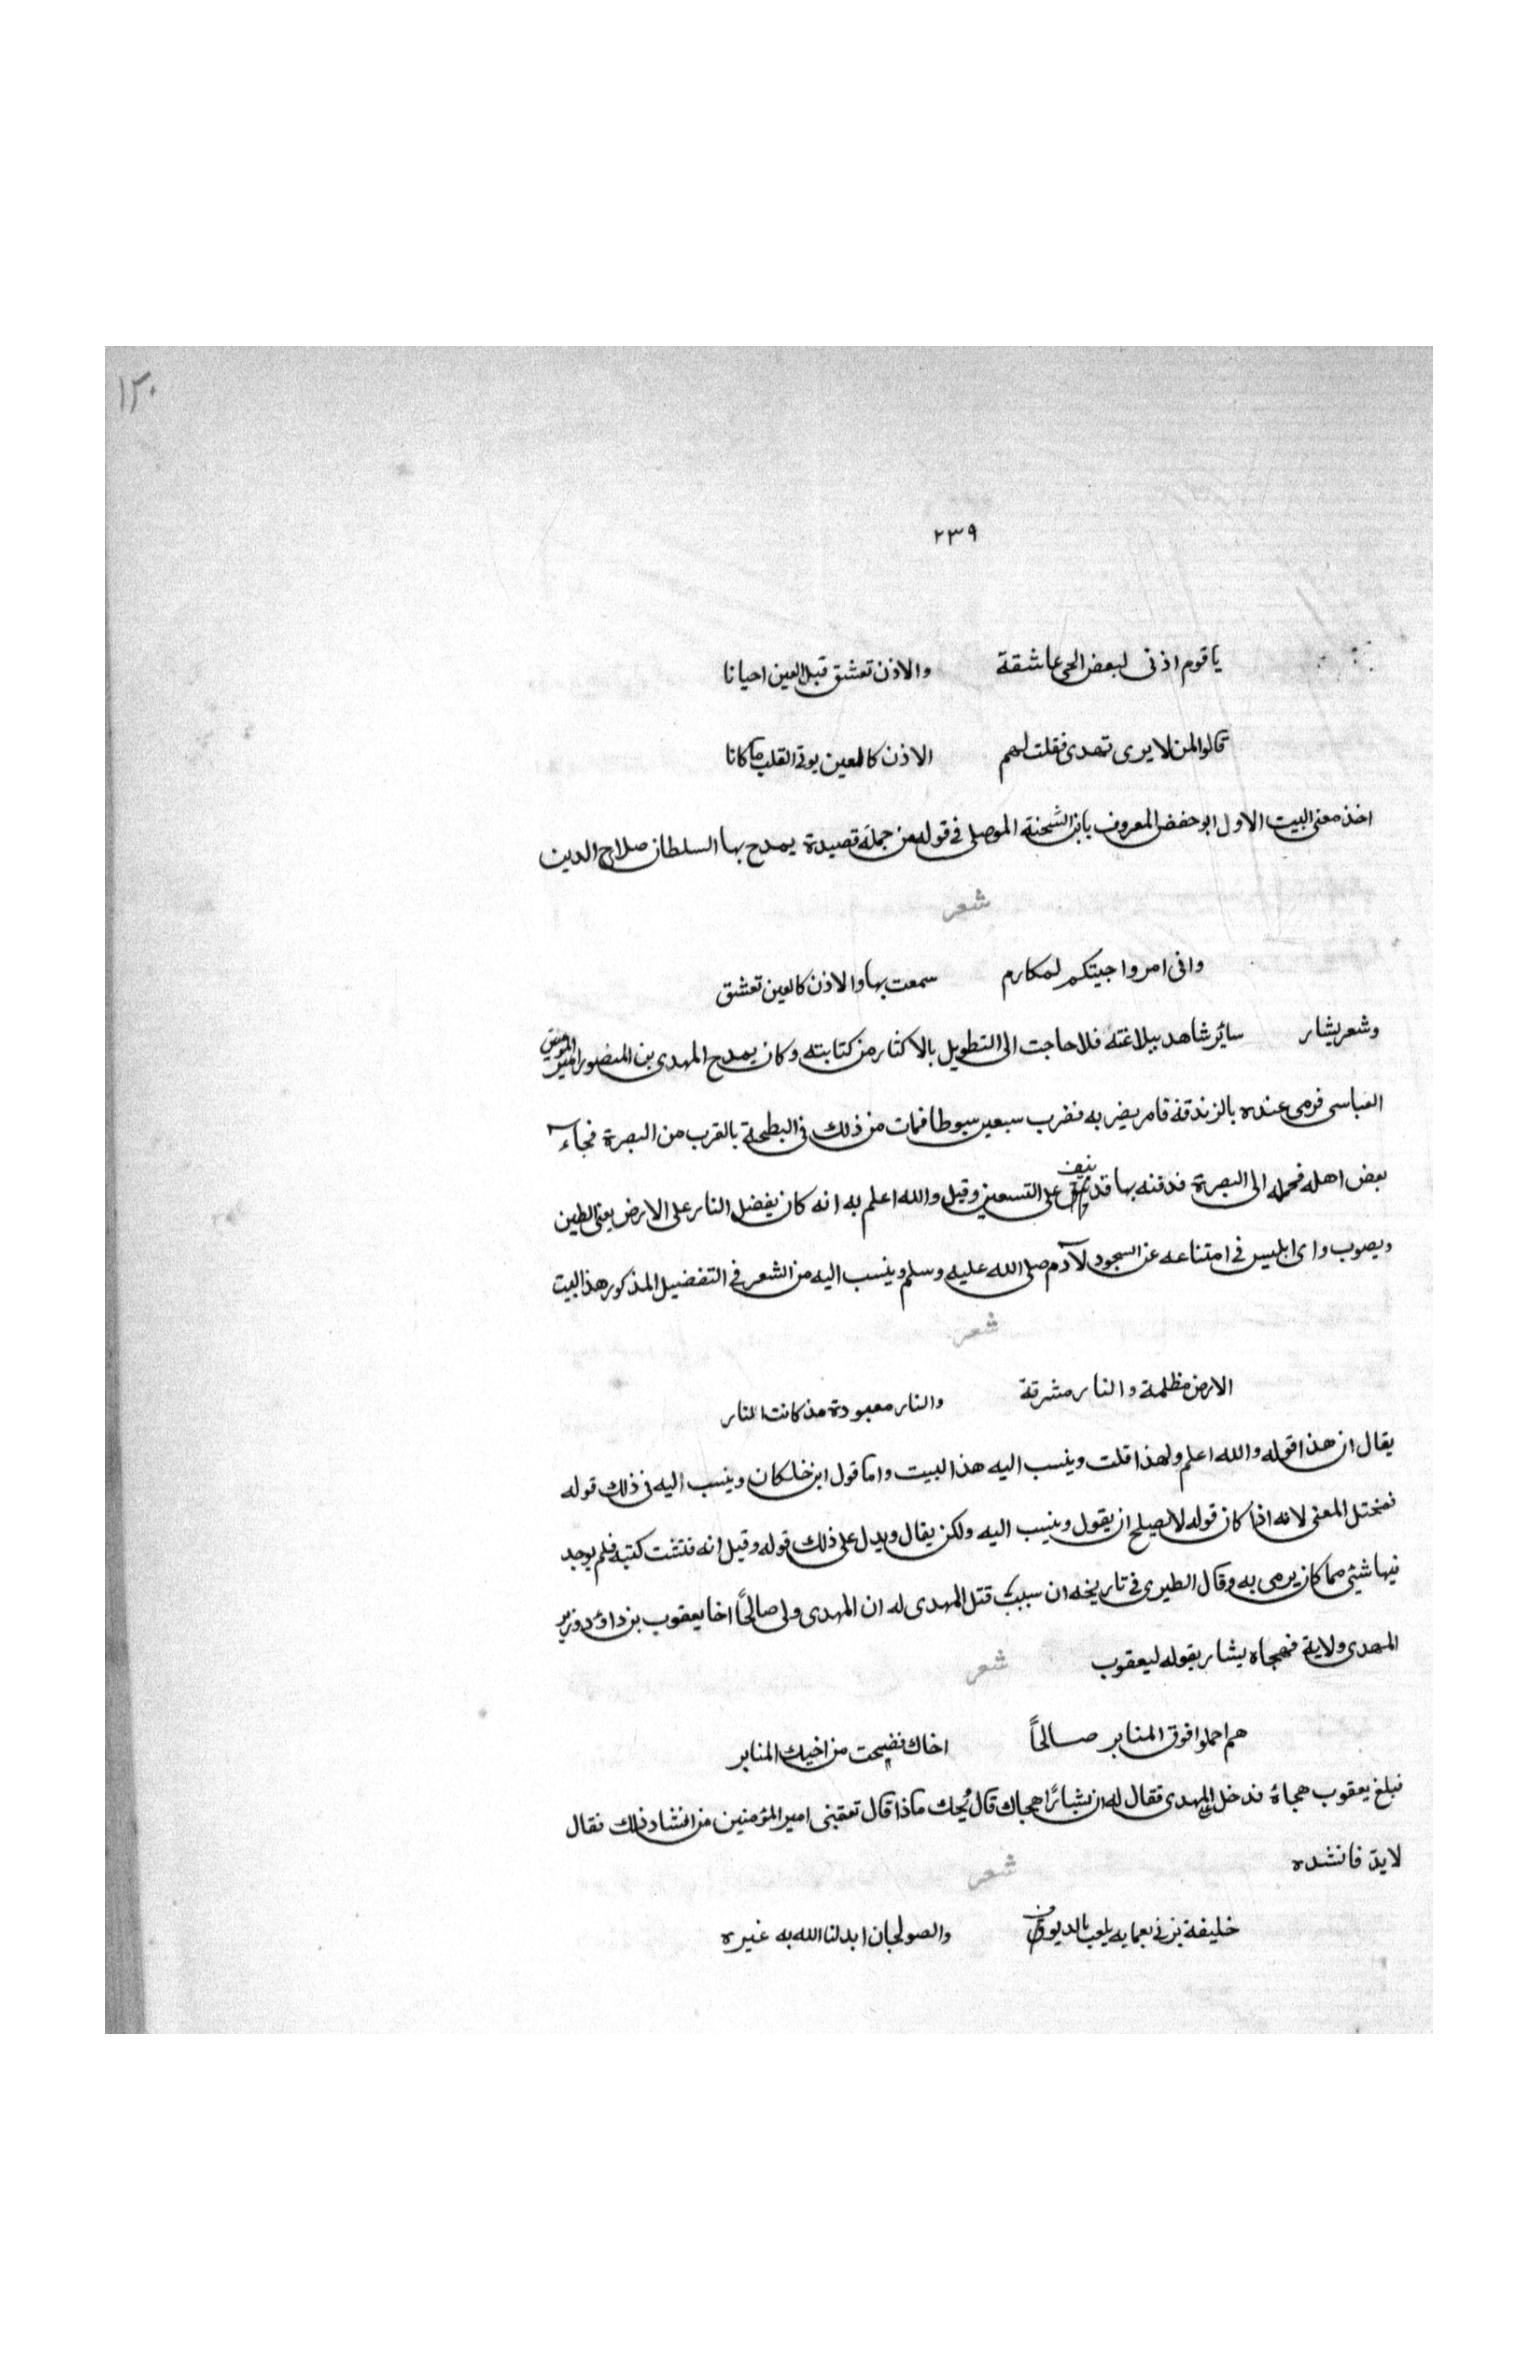 ١٢٠
٢٣٩
ياقوم اذنى لبعض الحى عاشقة والاذن تعشق قبل العين احيانا
قالوا لمن لا يرى تهدى فقلت لهم الاذن كالعين يوتى القلب ما كانا
اخذ معنى البيت الاول ابو حفض المعروف بابن الشحنة الموصلى فى قوله من جملة قصيدة يمدح بها السلطان صلاح الدين
شعر
وانى امروا جيتكم لمكارم سمعت بها والاذن كالعين تعشق
وشعر بشار سائر شاهد ببلاغته فلا حاجت الى التطويل بالاكثار من كتابته وكان يمدح المهدى بن المنصور امير المومنين
العباسى فرمى عنده بالزندقة فامر بضربه فضرب سبعين سبوطا فمات من ذلك فى البطيحة بالقرب من البصرة فجاء
بعض اهله فحمله الى البصرة فدفنه بها قد نيف على التسعين وقيل والله اعلم به انه كان يفضل النار على الارض يعنى الطين
ويصوب واى ابليس فى امتناعه عن السجود لآدم صلى الله عليه وسلم وينسب اليه من الشعر فى التفضيل المذكور هذا البيت
شعر
الارض مظلمة والنار مشرقة والنار معبودة مذ كانت النار
يقال ان هذا قوله والله اعلم ولهذا قلت وينسب اليه هذا البيت واما قول ابن خلكان وينسب اليه فى ذلك قوله
فمختل المعنى لانه اذا كان قوله لا يصلح ان يقول وينسب اليه ولكن يقال ويدل على ذلك قوله وقيل انه فتشت كتبه فلم يوجد
فيها شئ مما كان يرمى به وقال الطبرى فى تاريخه ان سبب قتل المهدى له ان المهدى ولى صالحًا اخا يعقوب بن داؤد وزير
المهدى ولاية فهجاه بشار بقوله ليعقوب شعر
هم احملوا فوق المنابر صالحًا اخاك فضيحت من اخيك المنابر
فبلغ يعقوب هجاؤه فدخل على المهدى فقال له ان بشارًا هجاك قال ويحك ماذا قال تعقبنى امير المؤمنين من انشاد ذلك فقال
لابدّ فانشده شعر
خليفة يزنى بعمايه يلعب بالديوق والصولجان ابدلنا الله به غيره